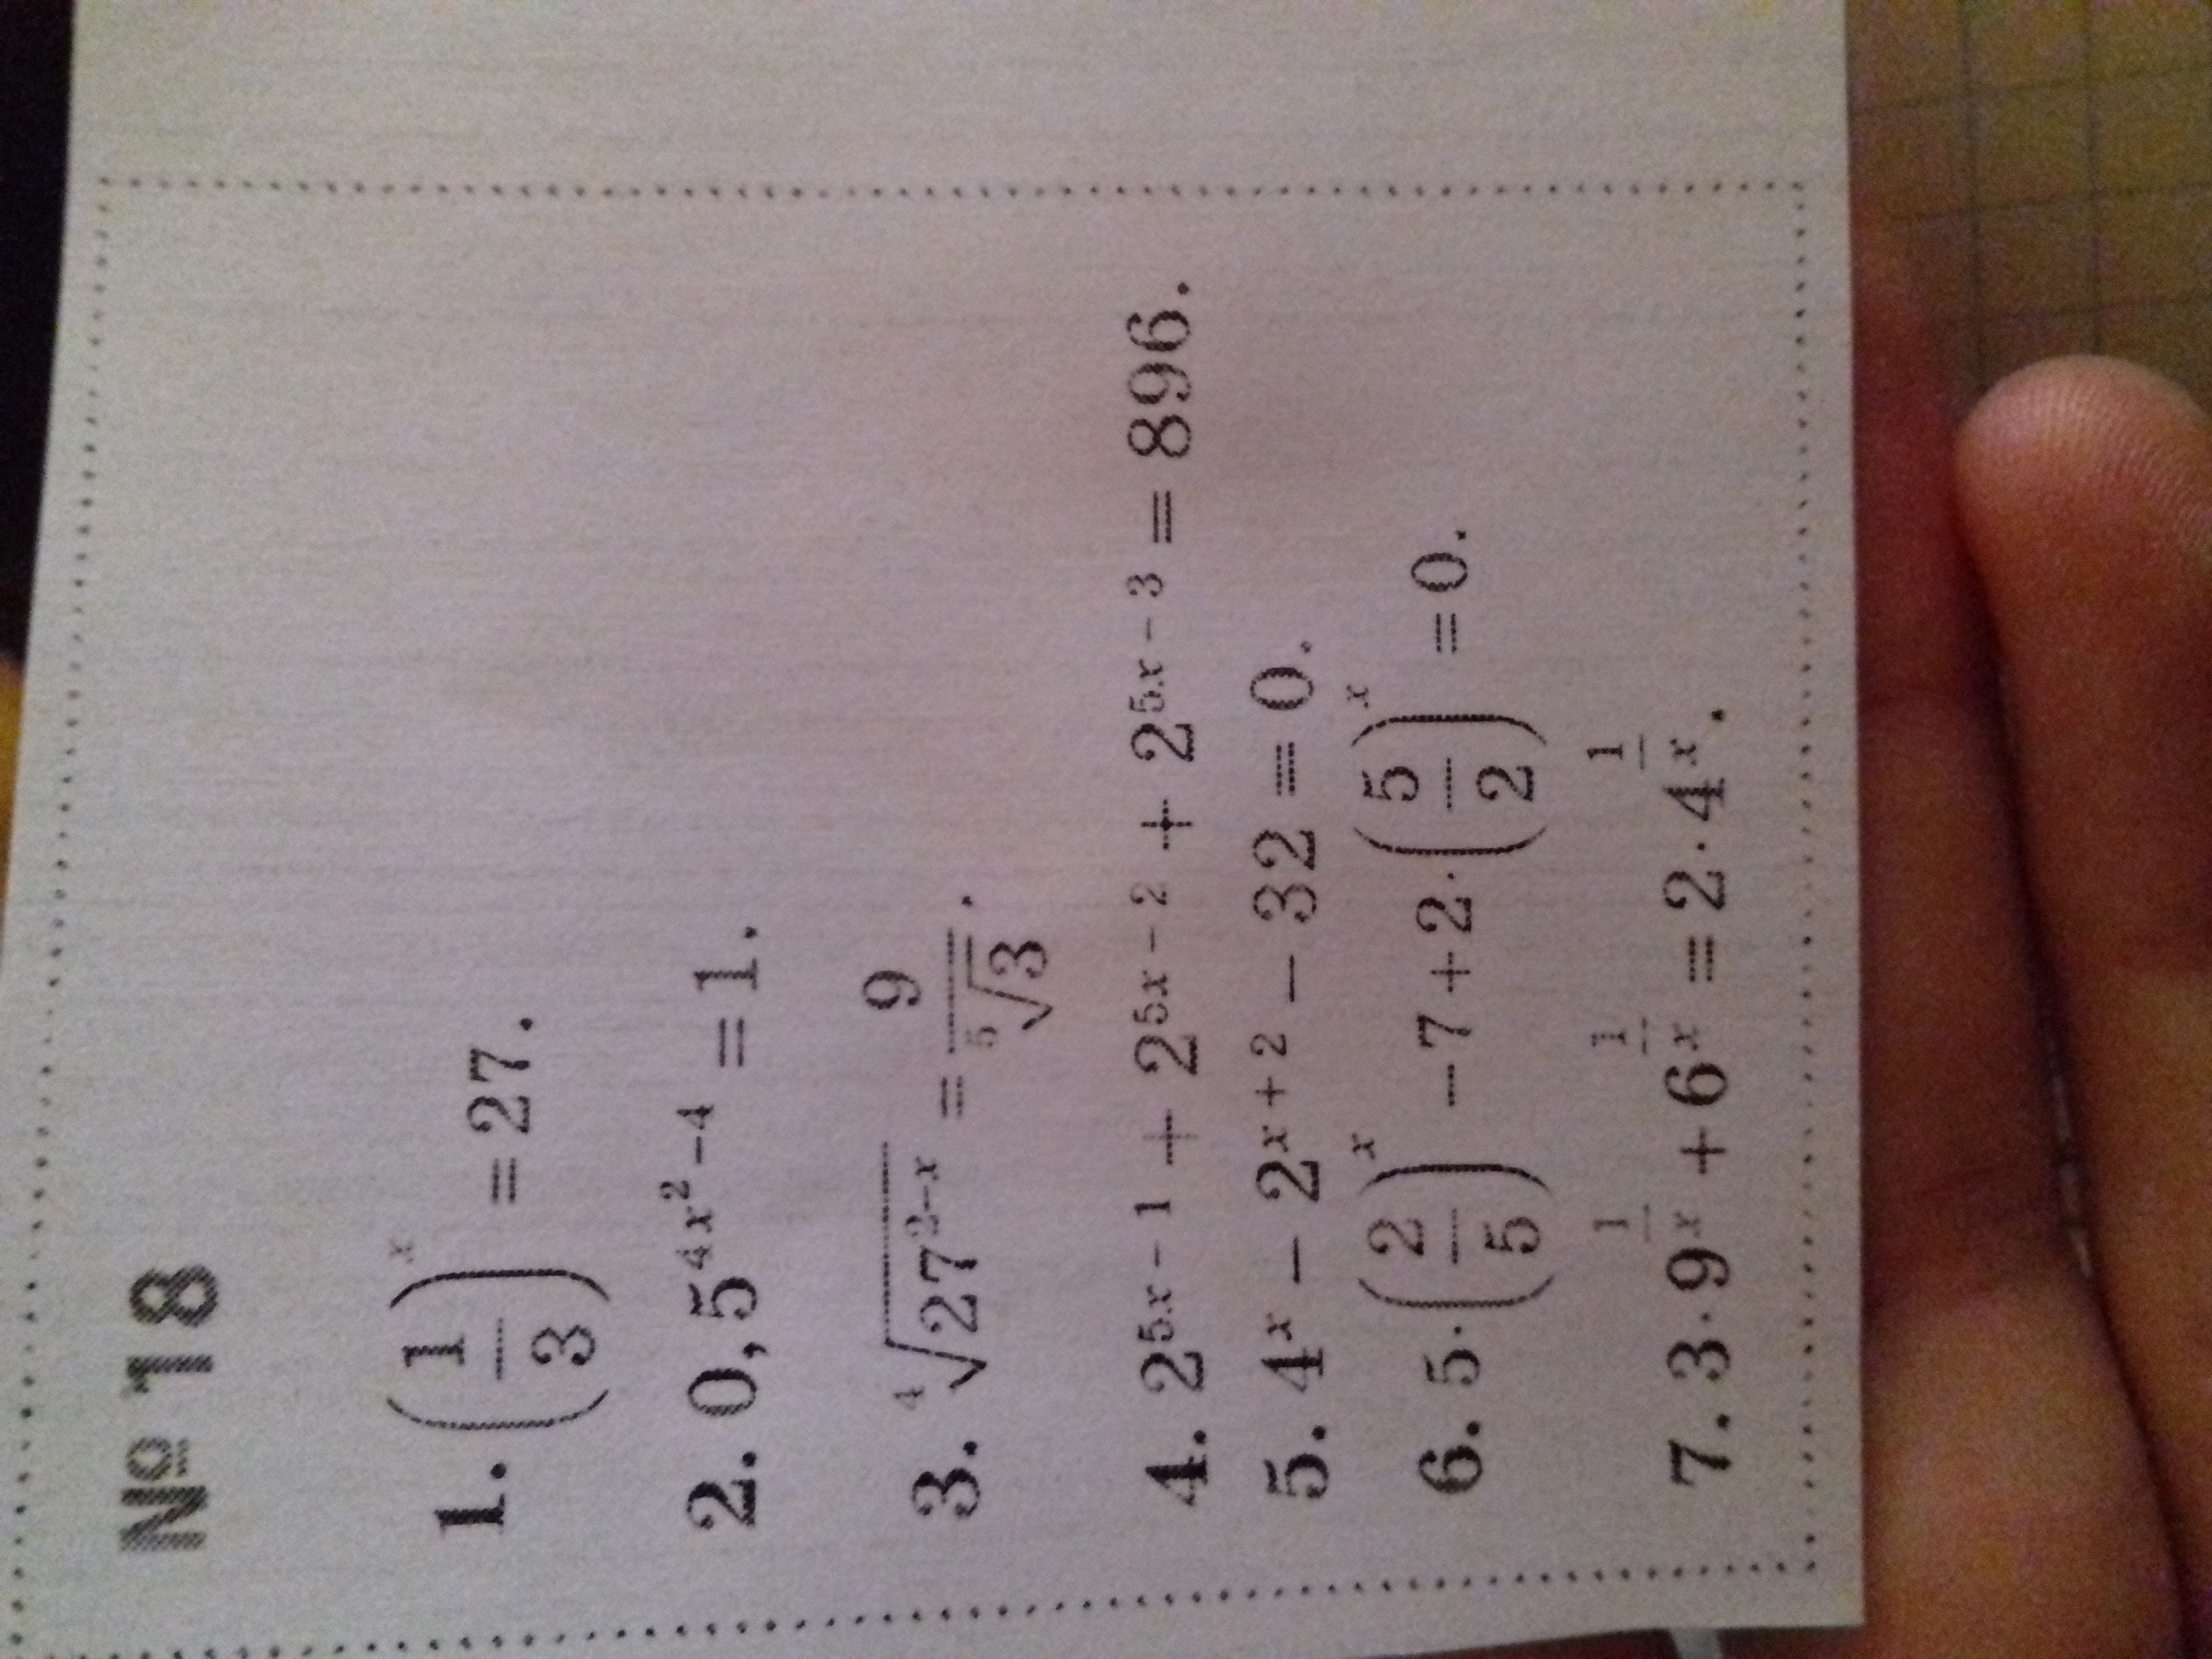 № 18
1. (1/3)^x = 27.
2. 0,5^(4x²−4) = 1.
3. ⁴√(27^(3−x)) = 9/⁵√3.
4. 2^(5x−1) + 2^(5x−2) + 2^(5x−3) = 896.
5. 4^x − 2^(x+2) − 32 = 0.
6. 5·(2/5)^x − 7 + 2·(5/2)^x = 0.
7. 3·9^(1/x) + 6^(1/x) = 2·4^(1/x).